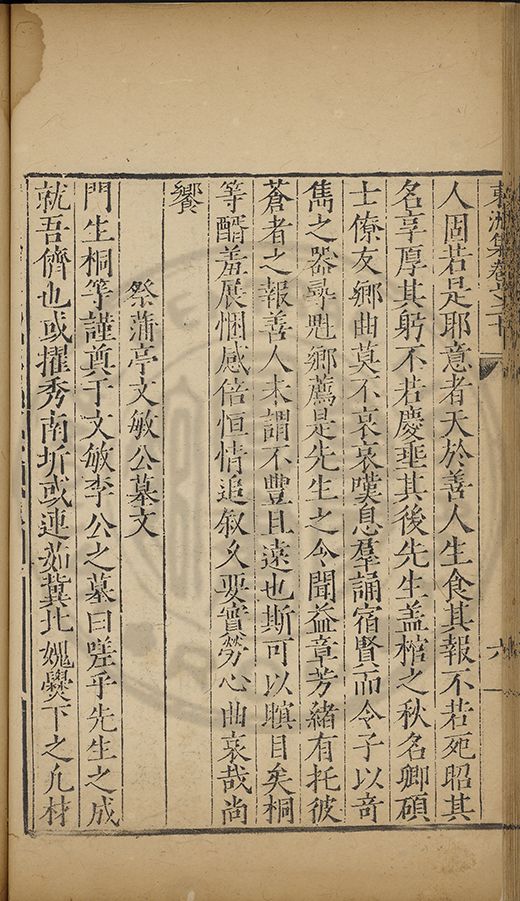 東洲集卷之二十
人固若是耶意者天於善人生食其報不若死昭其
名享厚其躬不若慶垂其後先生盖棺之秋名卿碩
士僚友鄉曲莫不哀哀嘆息羣誦宿賢而令子以竒
雋之器尋魁鄉薦是先生之令聞益章芳緒有托彼
蒼者之報善人未謂不豐且遠也斯可以瞑目矣桐
等醑羞展悃感倍恒情追叙久要實勞心曲哀哉尚
饗
祭蒲亭文敏公墓文
門生桐等謹奠于文敏李公之墓曰嗟乎先生之成
就吾儕也或擢秀南圻或連茹冀比媿爨下之凡材